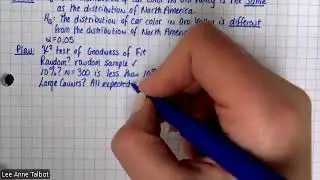 H₀: The distribution of car color in Oro Valley is the same
as the distribution of North America.
Hₐ: The distribution of car color in Oro Valley is different
from the distribution of North America.
α=0.05
Plan: X² test of Goodness of Fit
Random? random sample ✓
10%? n=300 is less than 10%
Large Counts? All expected
Lee Anne Talbot